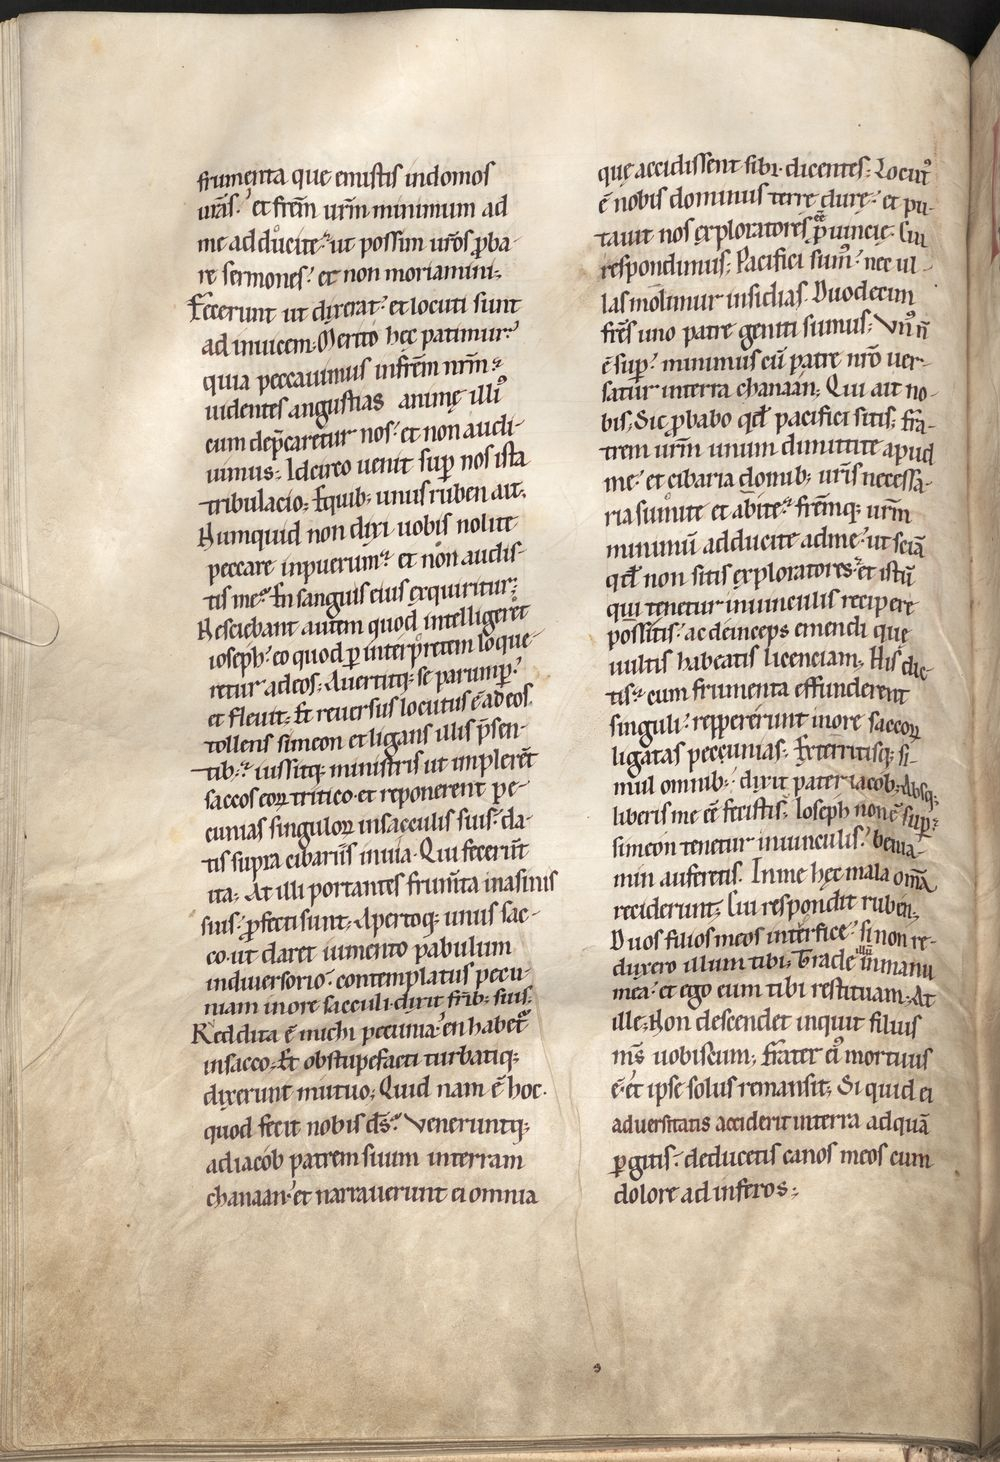 frumenta que emistis indomos
ur̄as. et frēm ur̄m minimum ad
me adducite. ut possim ur̄os p̱ba-
re sermones. et non moriamini;
Fecerunt ut dixerat. et locuti sunt
ad inuicem. Merito hec patimur.
quia peccauimus infrēm nr̄m.
uidentes angustias animę illi᷒
cum dep̄caretur nos. et non audi-
uimus. Idcirco uenit sup̱ nos ista
tribulacio. Equib; unus ruben ait.
Numquid non dixi uobis nolite
peccare inpuerum. et non audis-
tis me. En sanguis eius exquiritur;
Nesciebant autem quod intelligeret
ioseph. eo quod p̱ interpretem loque-
retur adeos. Auertitq; se parump̱.
et fleuit. Et reuersus locutus ē adeos.
tollens simeon et ligans illis p̄sen-
tib; iussitq; ministris ut implerēt
saccos eoꝝ tritico. et reponerent pe-
cunias singuloꝝ insacculis suis. da-
tis supra cibariis inuia. Qui fecerūt
ita. At illi portantes frum̄ta inasinis
suis. p̱fecti sunt. Apertoq; unus sac-
co. ut daret iumento pabulum
indiuersorio. contemplatus pecu-
niam inore sacculi. dixit frīb; suis.
Reddita ē michi pecunia. en habet᷒
insacco. Et obstupefacti turbatiq;
dixerunt mutuo. Quid nam ē hoc.
quod fecit nobis ds̄. Veneruntq;
adiacob patrem suum interram
chanaan. et narrauerunt ei omnia
quę accidissent sibi. dicentes. Locut᷒
ē nobis dominus terre durę. et pu-
tauit nos exploratores ee p̱uincię. Cui
respondimus. Pacifici sum᷒. nec ul-
las molimur insidias. Duodecim
frēs uno patre geniti sumus. Vn᷒ n̄
ē sup̱. minimus cū patre nr̄o uer-
satur interra chanaan. Qui ait no-
bis. Sic p̱babo qđ pacifici sitis. fra-
trem ur̄m unum dimittite apud
me. et cibaria domib; ur̄is necessa-
ria sumite et abite. frēmq; ur̄m
minimū adducite adme. ut sciā
qđ non sitis exploratores. et istū
qui tenetur inuinculis recipere
possitis. ac deinceps emendi que
uultis habeatis licenciam. His dic-
tis. cum frumenta effunderent
singuli. reppererunt inore saccoꝝ
ligatas peccunias. Exterritisq; si-
mul omnib; dixit pater iacob. Absq;
liberis me eē fecistis. Ioseph non ē sup̱.
simeon tenetur inuinculis. benia-
min auferetis. Inme hęc mala omā
reciderunt. Cui respondit ruben.
Duos filios meos interfice. si non re-
duxero illum tibi. Trade illū inmanu
mea. et ego eum tibi restituam. At
ille. Non descendet inquit filius
ms̄ uobiscum. Frater ei᷒ mortuus
ē. et ipse solus remansit. Si quid ei
aduersitatis acciderit interra adquā
p̱gitis. deducetis canos meos cum
dolore ad inferos.